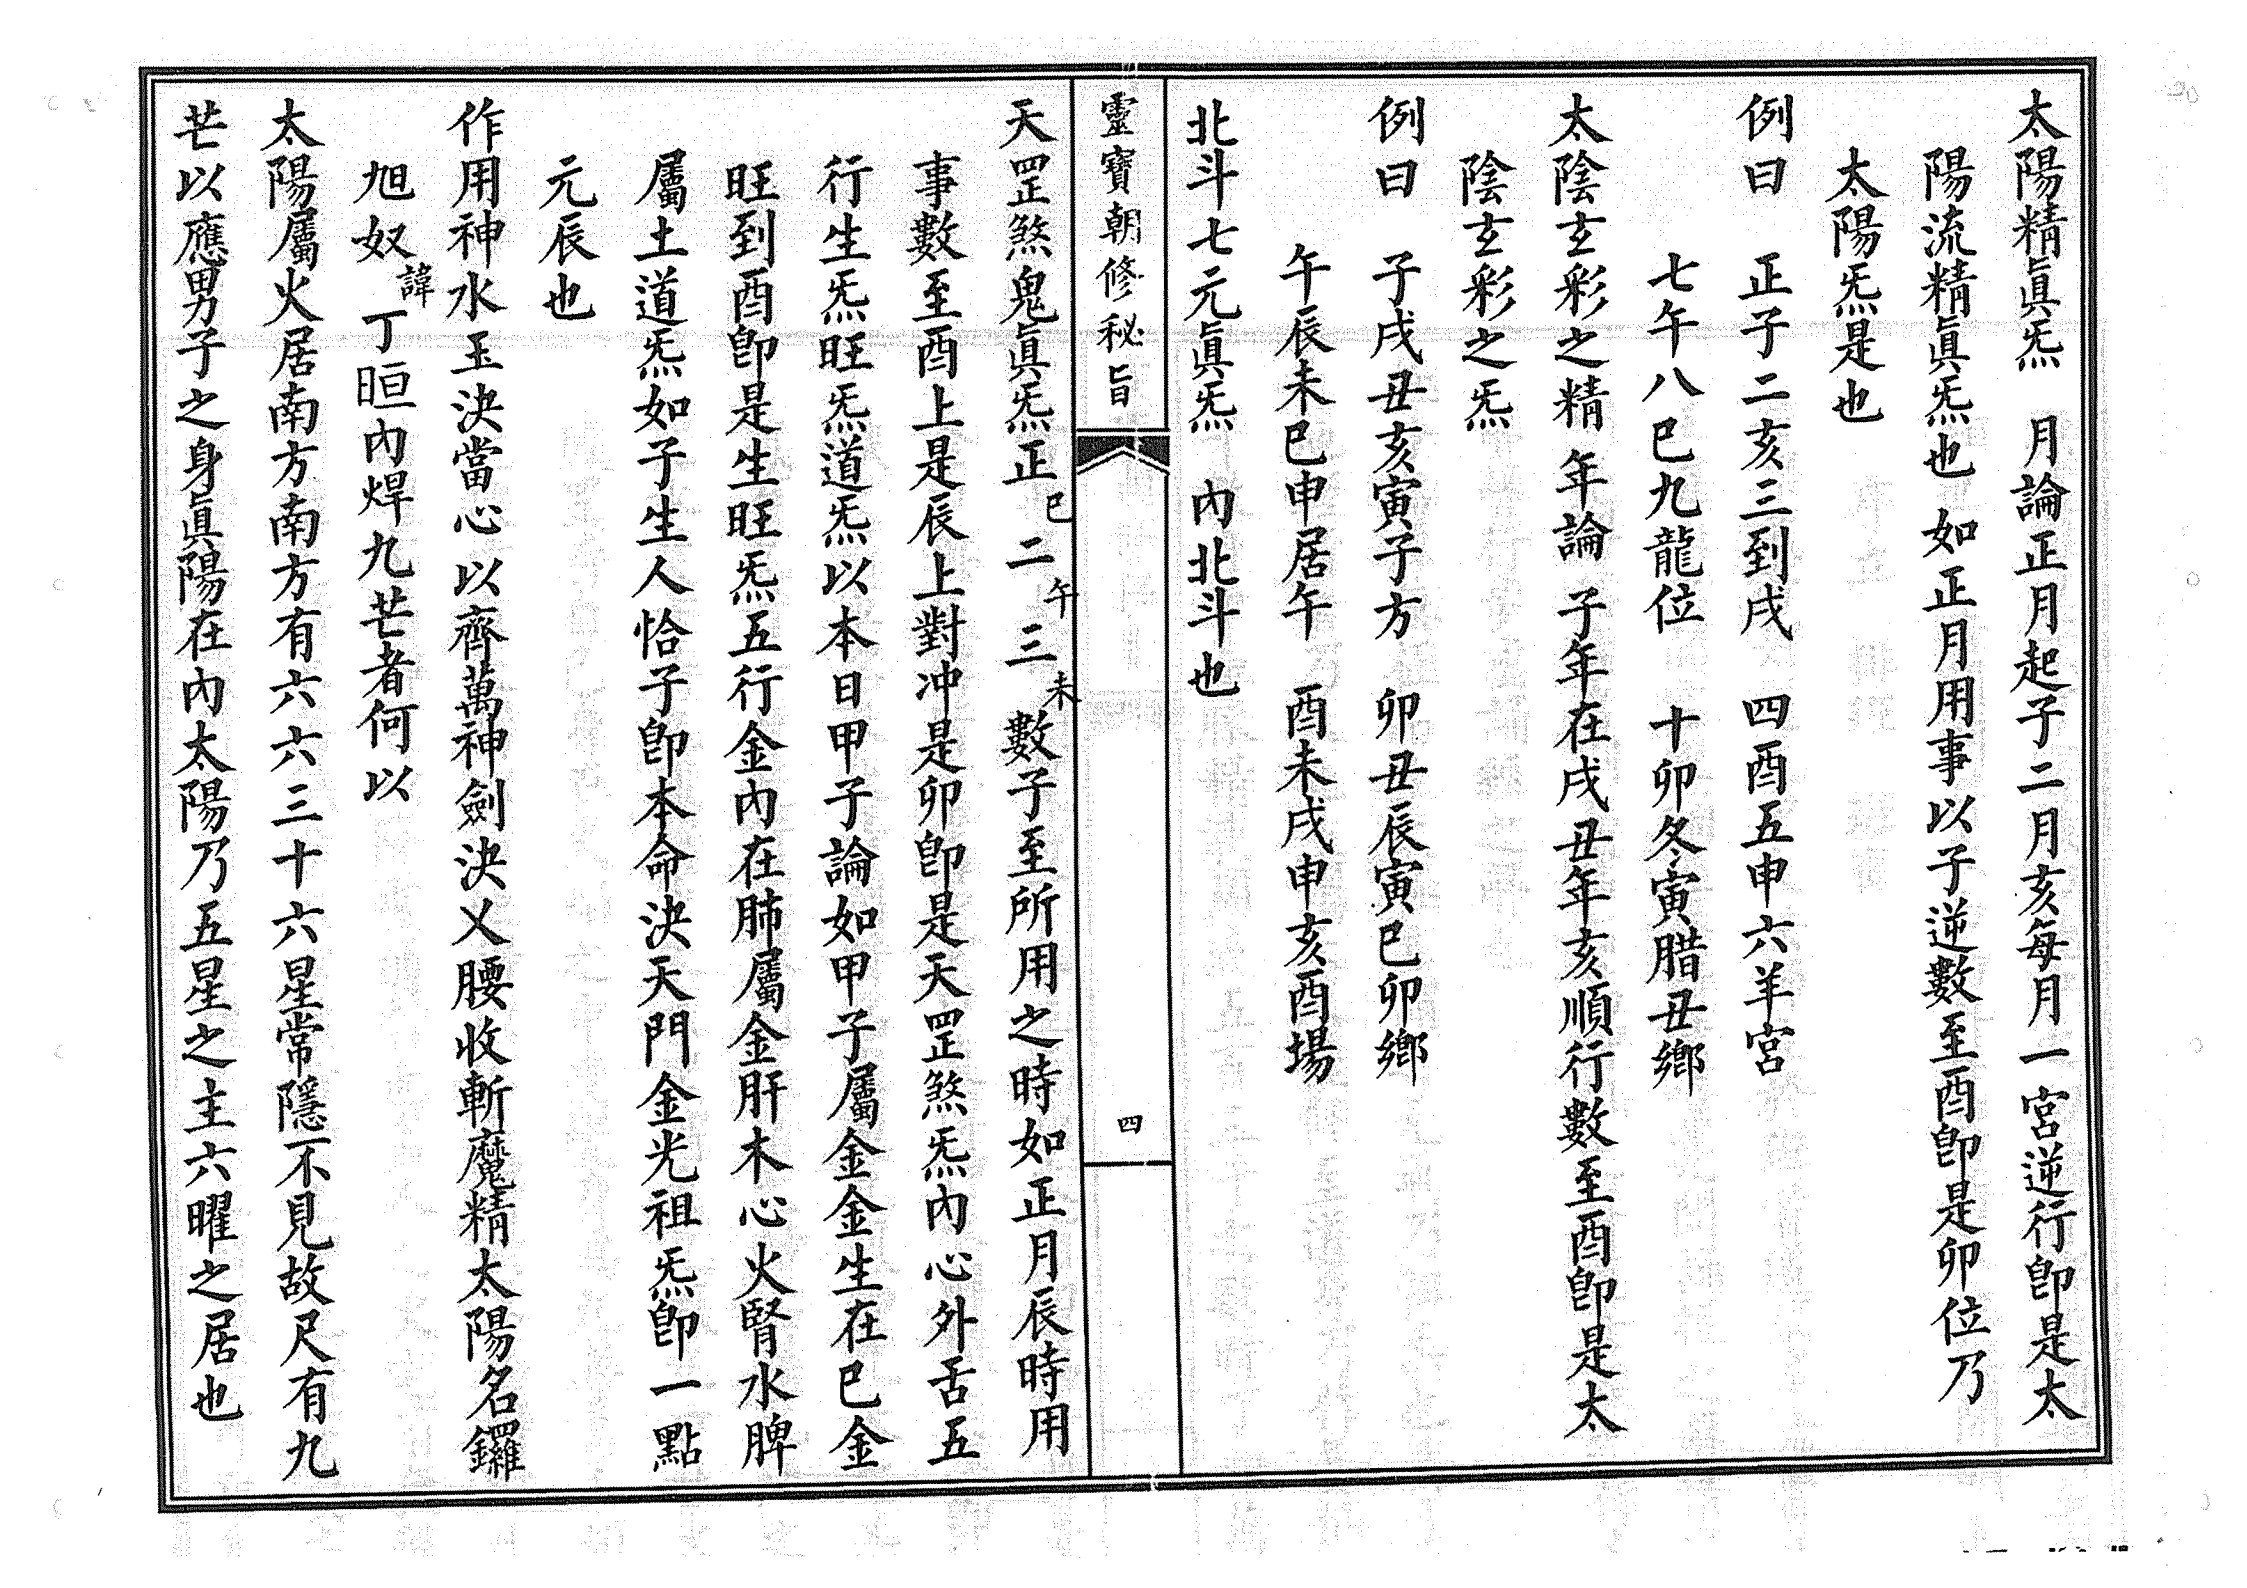 太陽精眞炁　月論正月起子二月亥每月一宮逆行卽是太
陽流精眞炁也　如正月用事以子逆數至酉卽是卯位乃
太陽炁是也
例曰　正子二亥三到戌　四酉五申六羊宮
七午八巳九龍位　十卯冬寅腊丑鄉
太陰玄彩之精　年論　子年在戌丑年亥順行數至酉卽是太
陰玄彩之炁
例曰　子戌丑亥寅子方　卯丑辰寅巳卯鄉
午辰未巳申居午　酉未戌申亥酉場
北斗七元眞炁　內北斗也
靈寶朝修秘旨
四
天罡煞鬼眞炁正巳二午三未數子至所用之時如正月辰時用
事數至酉上是辰上對冲是卯卽是天罡煞炁內心外舌五
行生炁旺炁道炁以本日甲子論如甲子屬金金生在巳金
旺到酉卽是生旺炁五行金內在肺屬金肝木心火腎水脾
屬土道炁如子生人恰子卽本命決天門金光祖炁卽一點
元辰也
作用神水玉決當心以齊萬神劍決㐅腰收斬魔精太陽名鑼
旭奴諱丁晅內焊九芒者何以
太陽屬火居南方南方有六六三十六星常隱不見故尺有九
芒以應男子之身眞陽在內太陽乃五星之主六曜之居也